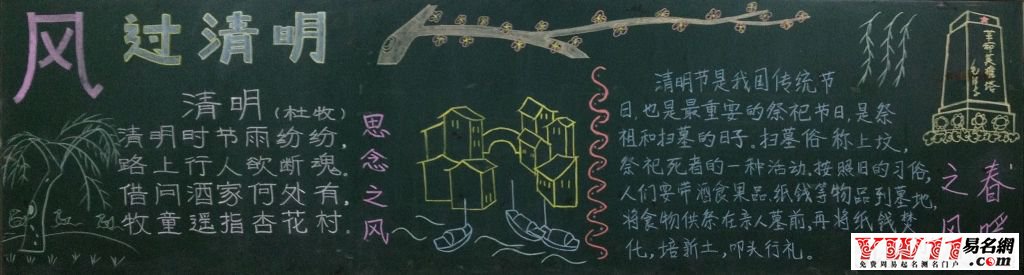 风过清明
清明(杜牧)
清明时节雨纷纷,
路上行人欲断魂.
借问酒家何处有,
牧童遥指杏花村.
思念之风
清明节是我国传统节
日,也是最重要的祭祀节日,是祭
祖和扫墓的日子.扫墓俗称上坟,
祭祀死者的一种活动.按照旧的习俗,
人们要带酒食果品.纸钱等物品到墓地,
将食物供祭在亲人墓前,再将纸钱焚
化,培新土,叩头行礼。
革命英雄塔
春暖
之风
易名網
.com
免费周易起名测名门户